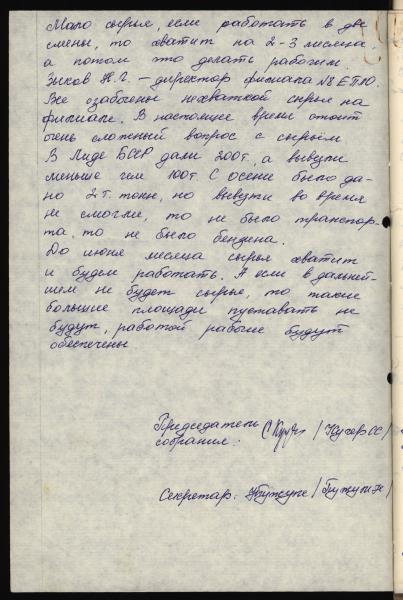 Мало сырья, если работать в две
смены, то хватит на 2-3 месяца,
а потом что делать рабочим.
Зыков Н.Г. – директор филиала №8 ЕТПО.
Все озабочены нехваткой сырья на
филиале. В настоящее время стоит
очень сложный вопрос с сырьём
В Лиде БССР дали 200т., а вывезли
меньше чем 100т. С осени было да-
но 2 т. тонн, но вывезти во время
не смогли, то не было транспор-
та, то не было бензина.
До июня месяца сырья хватит
и будем работать. А если в дальней-
шем не будет сырья, то такие
большие площади пустовать не
будут, работой рабочие будут
обеспечены
Председатель
собрания:
Секретар: